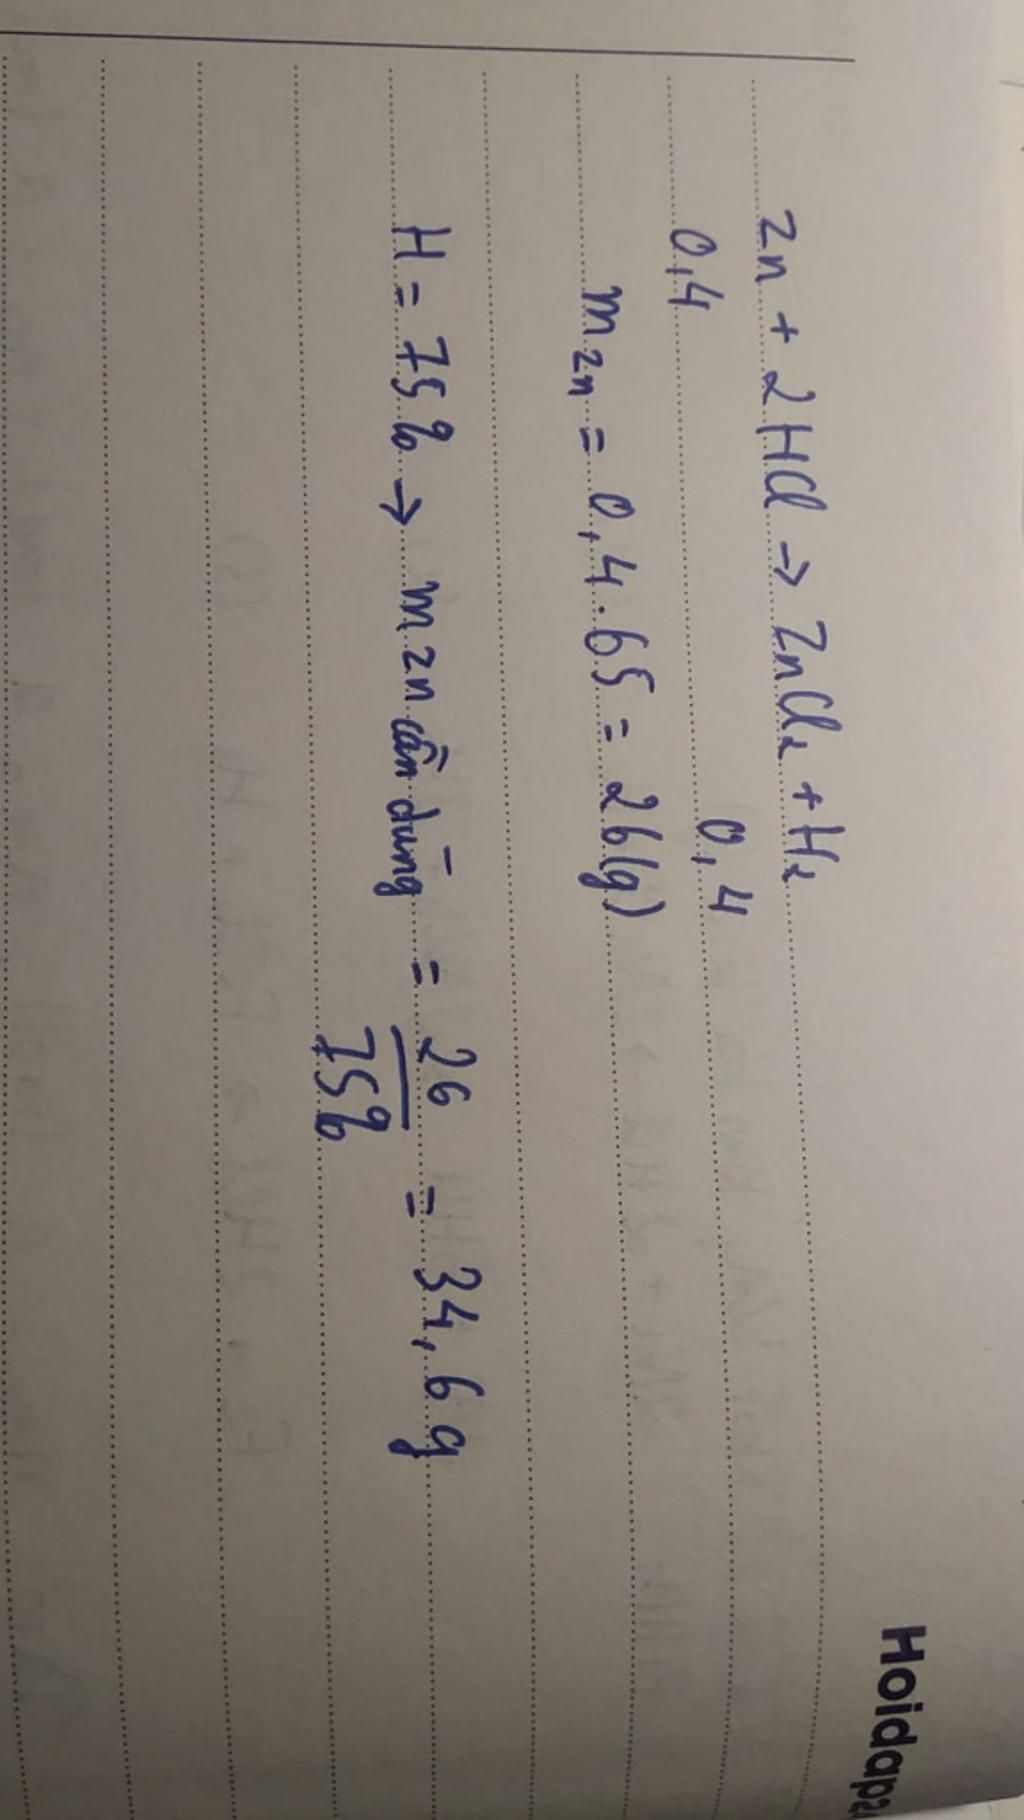 Zn + 2HCl → ZnCl₂ + H₂
0,4 0,4
m Zn = 0,4 . 65 = 26 (g)
H = 75% → m Zn cần dùng = 26/75% = 34,6 g